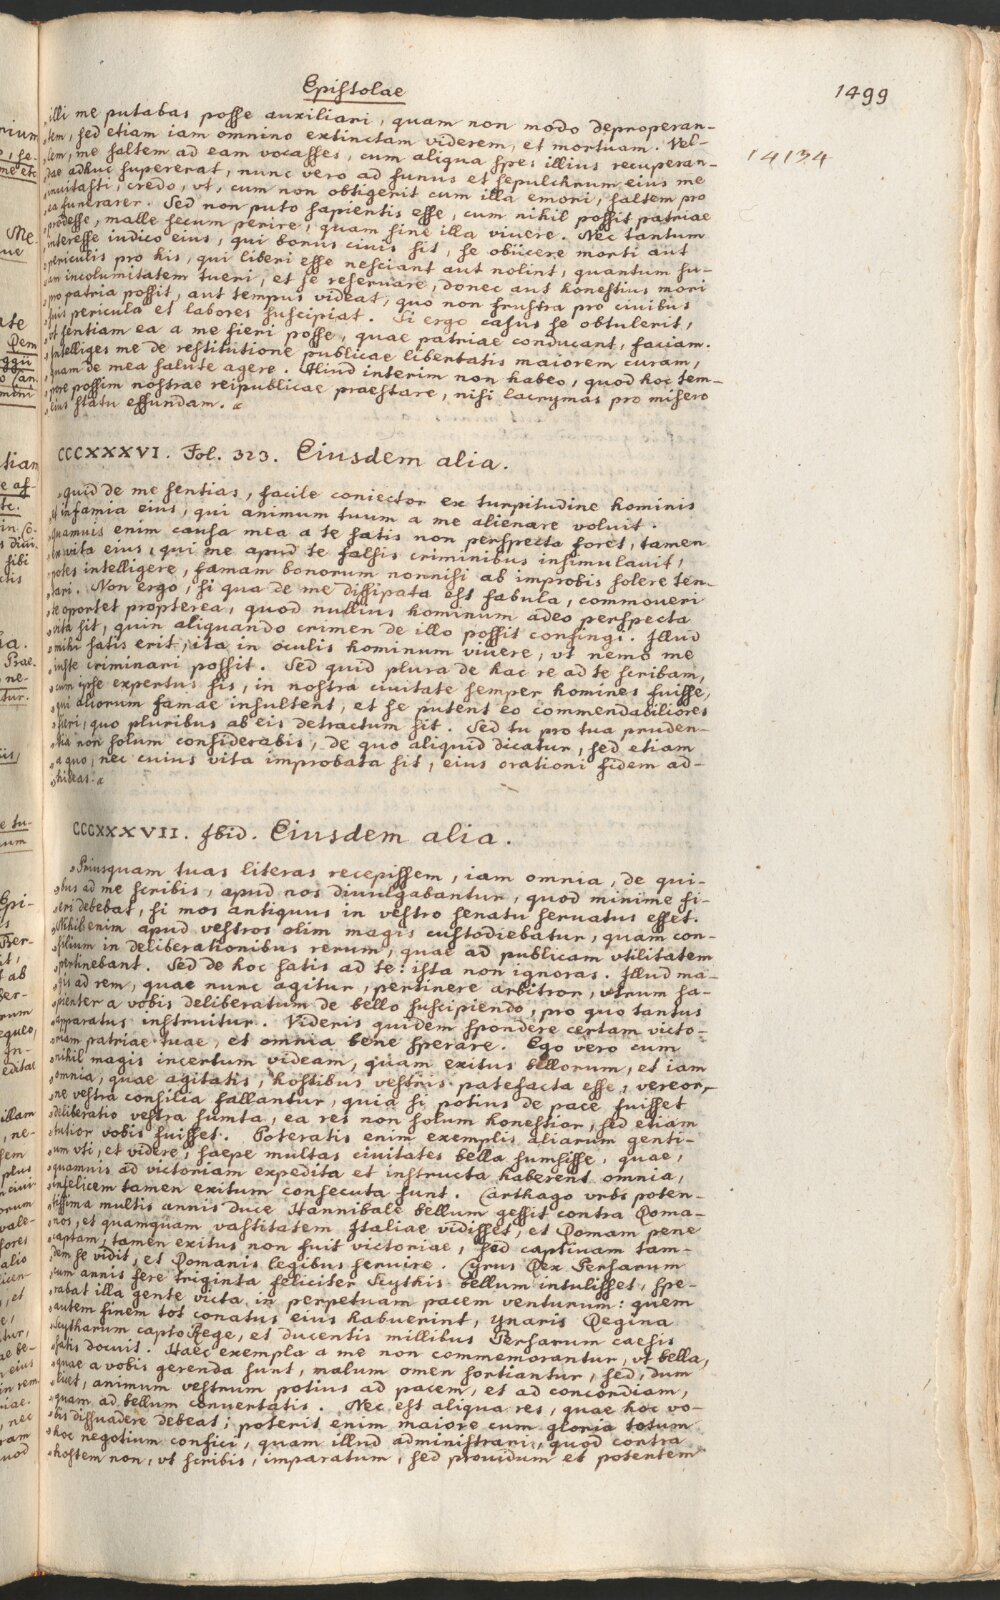 Epistolae
1499
„illi me putabas posse auxiliari, quam non modo deproperan-
„tem, sed etiam iam omnino extinctam viderem, et mortuam. Vel-
„lem, me saltem ad eam vocasses, cum aliqua spes illius recuperan-
14134
„dae adhuc supererat, nunc vero ad funus et sepulchrum eius me
„invitasti, credo, vt, cum non obtigerit cum illa emori, saltem pro
„ea funerarer. Sed non puto sapientis esse, cum nihil possit patriae
„prodesse, malle secum perire, quam sine illa viuere. Nec tantum
„interesse iudico eius, qui bonus ciuis sit, se obiicere morti aut
„periculis pro his, qui liberi esse nesciant aut nolint, quantum su-
„am incolumitatem tueri, et se reseruare, donec aut honestius mori
„pro patria possit, aut tempus videat, quo non frustra pro ciuibus
„suis pericula et labores suscipiat. Si ergo casus se obtulerit,
„vt sentiam ea a me fieri posse, quae patriae conducant, faciam.
„Intelliges me de restitutione publicae libertatis maiorem curam,
„quam de mea salute agere. Aliud interim non habeo, quod hoc tem-
„pore possim nostrae reipublicae praestare, nisi lacrymas pro misero
„eius statu effundam. „
CCCXXXVI. Fol. 323. Eiusdem alia.
„quid de me sentias, facile coniector ex turpitudine hominis
„et infamia eius, qui animum tuum a me alienare voluit.
„quamuis enim causa mea a te satis non perspecta foret, tamen
„ex vita eius, qui me apud te falsis criminibus insimulauit,
„potes intelligere, famam bonorum nonnisi ab improbis solere ten-
„tari. Non ergo, si qua de me dissipata est fabula, commoueri
„te oportet propterea, quod nullius hominum adeo perspecta
„vita sit, quin aliquando crimen de illo possit confingi. Illud
„mihi satis erit, ita in oculis hominum viuere, vt nemo me
„iuste criminari possit. Sed quid plura de hac re ad te scribam,
„cum ipse expertus sis, in nostra ciuitate semper homines fuisse,
„qui aliorum famae insultent, et se putent eo commendabiliores
„fieri, quo pluribus ab eis detractum sit. Sed tu pro tua pruden-
„tia non solum considerabis, de quo aliquid dicatur, sed etiam
„a quo, nec cuius vita improbata sit, eius orationi fidem ad-
„hibeas. „
CCCXXXVII. Ibid. Eiusdem alia.
„Priusquam tuas literas recepissem, iam omnia, de qui-
„bus ad me scribis, apud nos diuulgabantur, quod minime fi-
„eri debebat, si mos antiquus in vestro senatu seruatus esset.
„Nihil enim apud vestros olim magis custodiebatur, quam con-
„silium in deliberationibus rerum, quae ad publicam vtilitatem
„pertinebant. Sed de hoc satis ad te: ista non ignoras. Illud ma-
„gis ad rem, quae nunc agitur, pertinere arbitror, vtrum sa-
„pienter a vobis deliberatum de bello suscipiendo, pro quo tantus
„apparatus instruitur. Videris quidem spondere certam victo-
„riam patriae tuae, et omnia bene sperare. Ego vero cum
„nihil magis incertum videam, quam exitus bellorum, et iam
„omnia, quae agitatis, hostibus vestris patefacta esse, vereor,
„ne vestra consilia fallantur, quia si potius de pace fuisset
„deliberatio vestra sumta, ea res non solum honestior, sed etiam
„tutior vobis fuisset. Poteratis enim exemplis aliarum genti-
„um vti, et videre, saepe multas ciuitates bella sumsisse, quae,
„quamuis ad victoriam expedita et instructa haberent omnia,
„infelicem tamen exitum consecuta sunt. Carthago vrbs poten-
„tissima multis annis duce Hannibale bellum gessit contra Roma-
„nos, et quamquam vastitatem Italiae vidisset, et Romam pene
„captam, tamen exitus non fuit victoriae, sed captiuam tam-
„dem se vidit, et Romanis legibus seruire. Cyrus Rex Persarum
„cum annis fere triginta feliciter Scythis bellum intulisset, spe-
„rabat illa gente victa in perpetuam pacem venturum: quem
„autem finem tot conatus eius habuerint, ynaris Regina
„Scytharum capto Rege, et ducentis millibus Persarum caesis
„satis docuit. Haec exempla a me non commemorantur, vt bella,
„quae a vobis gerenda sunt, malum omen sortiantur, sed, dum
„licet, animum vestrum potius ad pacem, et ad concordiam,
„quam ad bellum conuertatis. Nec est aliqua res, quae hoc vo-
„bis dissuadere debeat; poterit enim maiore cum gloria totum
„hoc negotium confici, quam illud administrari, quod contra
„hostem non, vt scribis, imparatum, sed prouidum et potentem